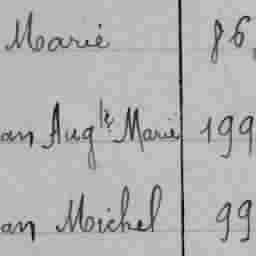 Marie 86,
an Aug te Marie 199
an Michel 99